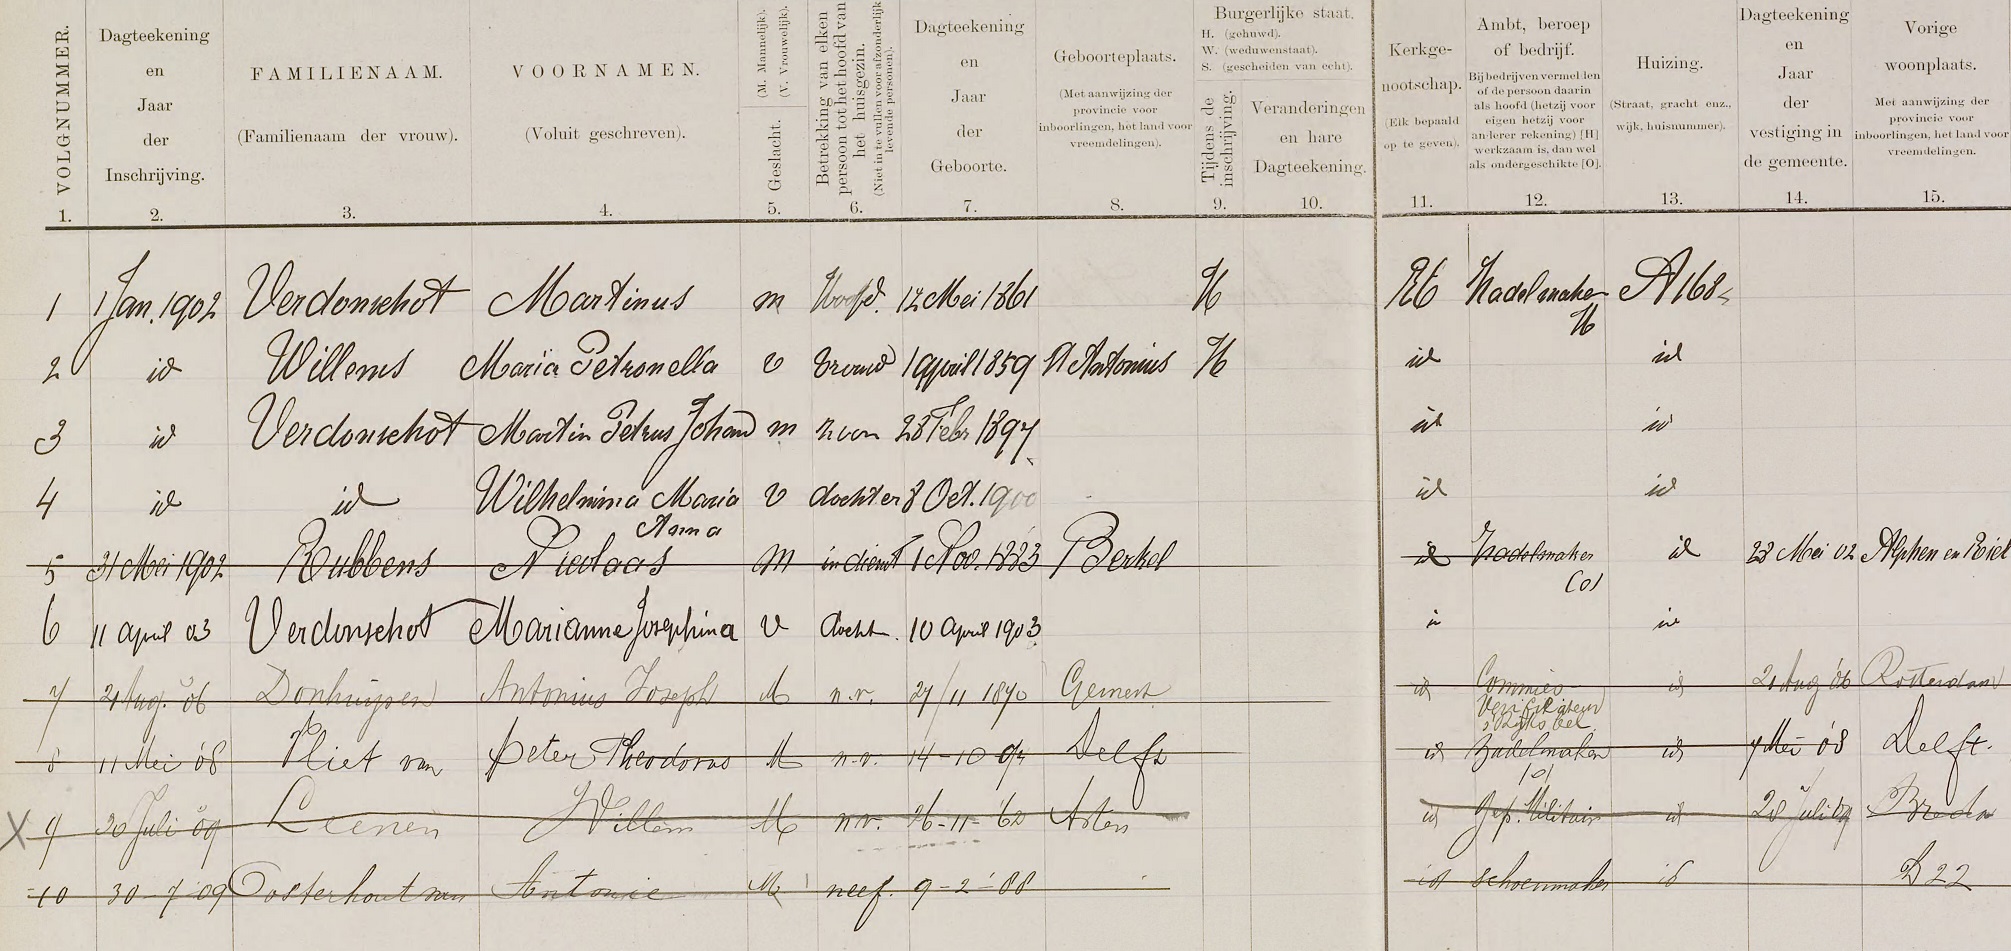 VOLGNUMMER.
1.
Dagteekening
en
Jaar
der
Inschrijving.
2.
FAMILIENAAM.
(Familienaam der vrouw).
3.
VOORNAMEN.
(Voluit geschreven).
4.
Geslacht. (M. Mannelijk). (V. Vrouwelijk).
5.
Betrekking van elken
persoon tot het hoofd van
het huisgezin.
(Niet in te vullen voor afzonderlijk
levende personen).
6.
Dagteekening
en
Jaar
der
Geboorte.
7.
Geboorteplaats.
(Met aanwijzing der
provincie voor
inboorlingen, het land voor
vreemdelingen).
8.
Burgerlijke staat.
H. (gehuwd).
W. (weduwenstaat).
S. (gescheiden van echt).
Tijdens de
inschrijving.
9.
Veranderingen
en hare
Dagteekening.
10.
Kerkge-
nootschap.
(Elk bepaald
op te geven).
11.
Ambt, beroep
of bedrijf.
Bij bedrijven vermelden
of de persoon daarin
als hoofd (hetzij voor
eigen hetzij voor
anderer rekening) [H]
werkzaam is, dan wel
als ondergeschikte [O].
12.
Huizing.
(Straat, gracht enz.,
wijk, huisnummer).
13.
Dagteekening
en
Jaar
der
vestiging in
de gemeente.
14.
Vorige
woonplaats.
Met aanwijzing der
provincie voor
inboorlingen, het land voor
vreemdelingen.
15.
1 1 Jan. 1902 Verdonschot Martinus m Hoofd. 12 Mei 1861 H RC Zadelmaker A 168
H
2 id Willems Maria Petronella v vrouw 1 april 1859 St Antonius H id id
3 id Verdonschot Martin Petrus Johan m zoon 28 Febr 1897 id id
4 id id Wilhelmina Maria v dochter 8 Oct. 1900 id id
Anna
5 31 Mei 1902 Rubbens Nicolaas m in dienst 1 Nov. 1883 Berkel id Zadelmaker id 28 Mei 02 Alphen en Riel
(O)
6 11 april 03 Verdonschot Marianne Josephina v docht. 10 april 1903 id
7 Aug. '06 Donkuijsen Antonius Joseph M n.v. 27/11 1870 Gemert id Commies- id Aug '06 Rotterdam
Verifikateur
8 11 Mei '08 Vliet van Peter Theodorus M n.v. 14-10-92 Delft id Zadelmaker id 7 Mei '08 Delft.
(O)
X 9 30 Juli '09 Leenen Willem M n.v. 26-11-'62 Asten id Gep. Militair id 28 Juli '09 Breda
10 30-7-09 Oosterhout van Antonie M neef. 9-2-'88 id schoenmaker id D 22